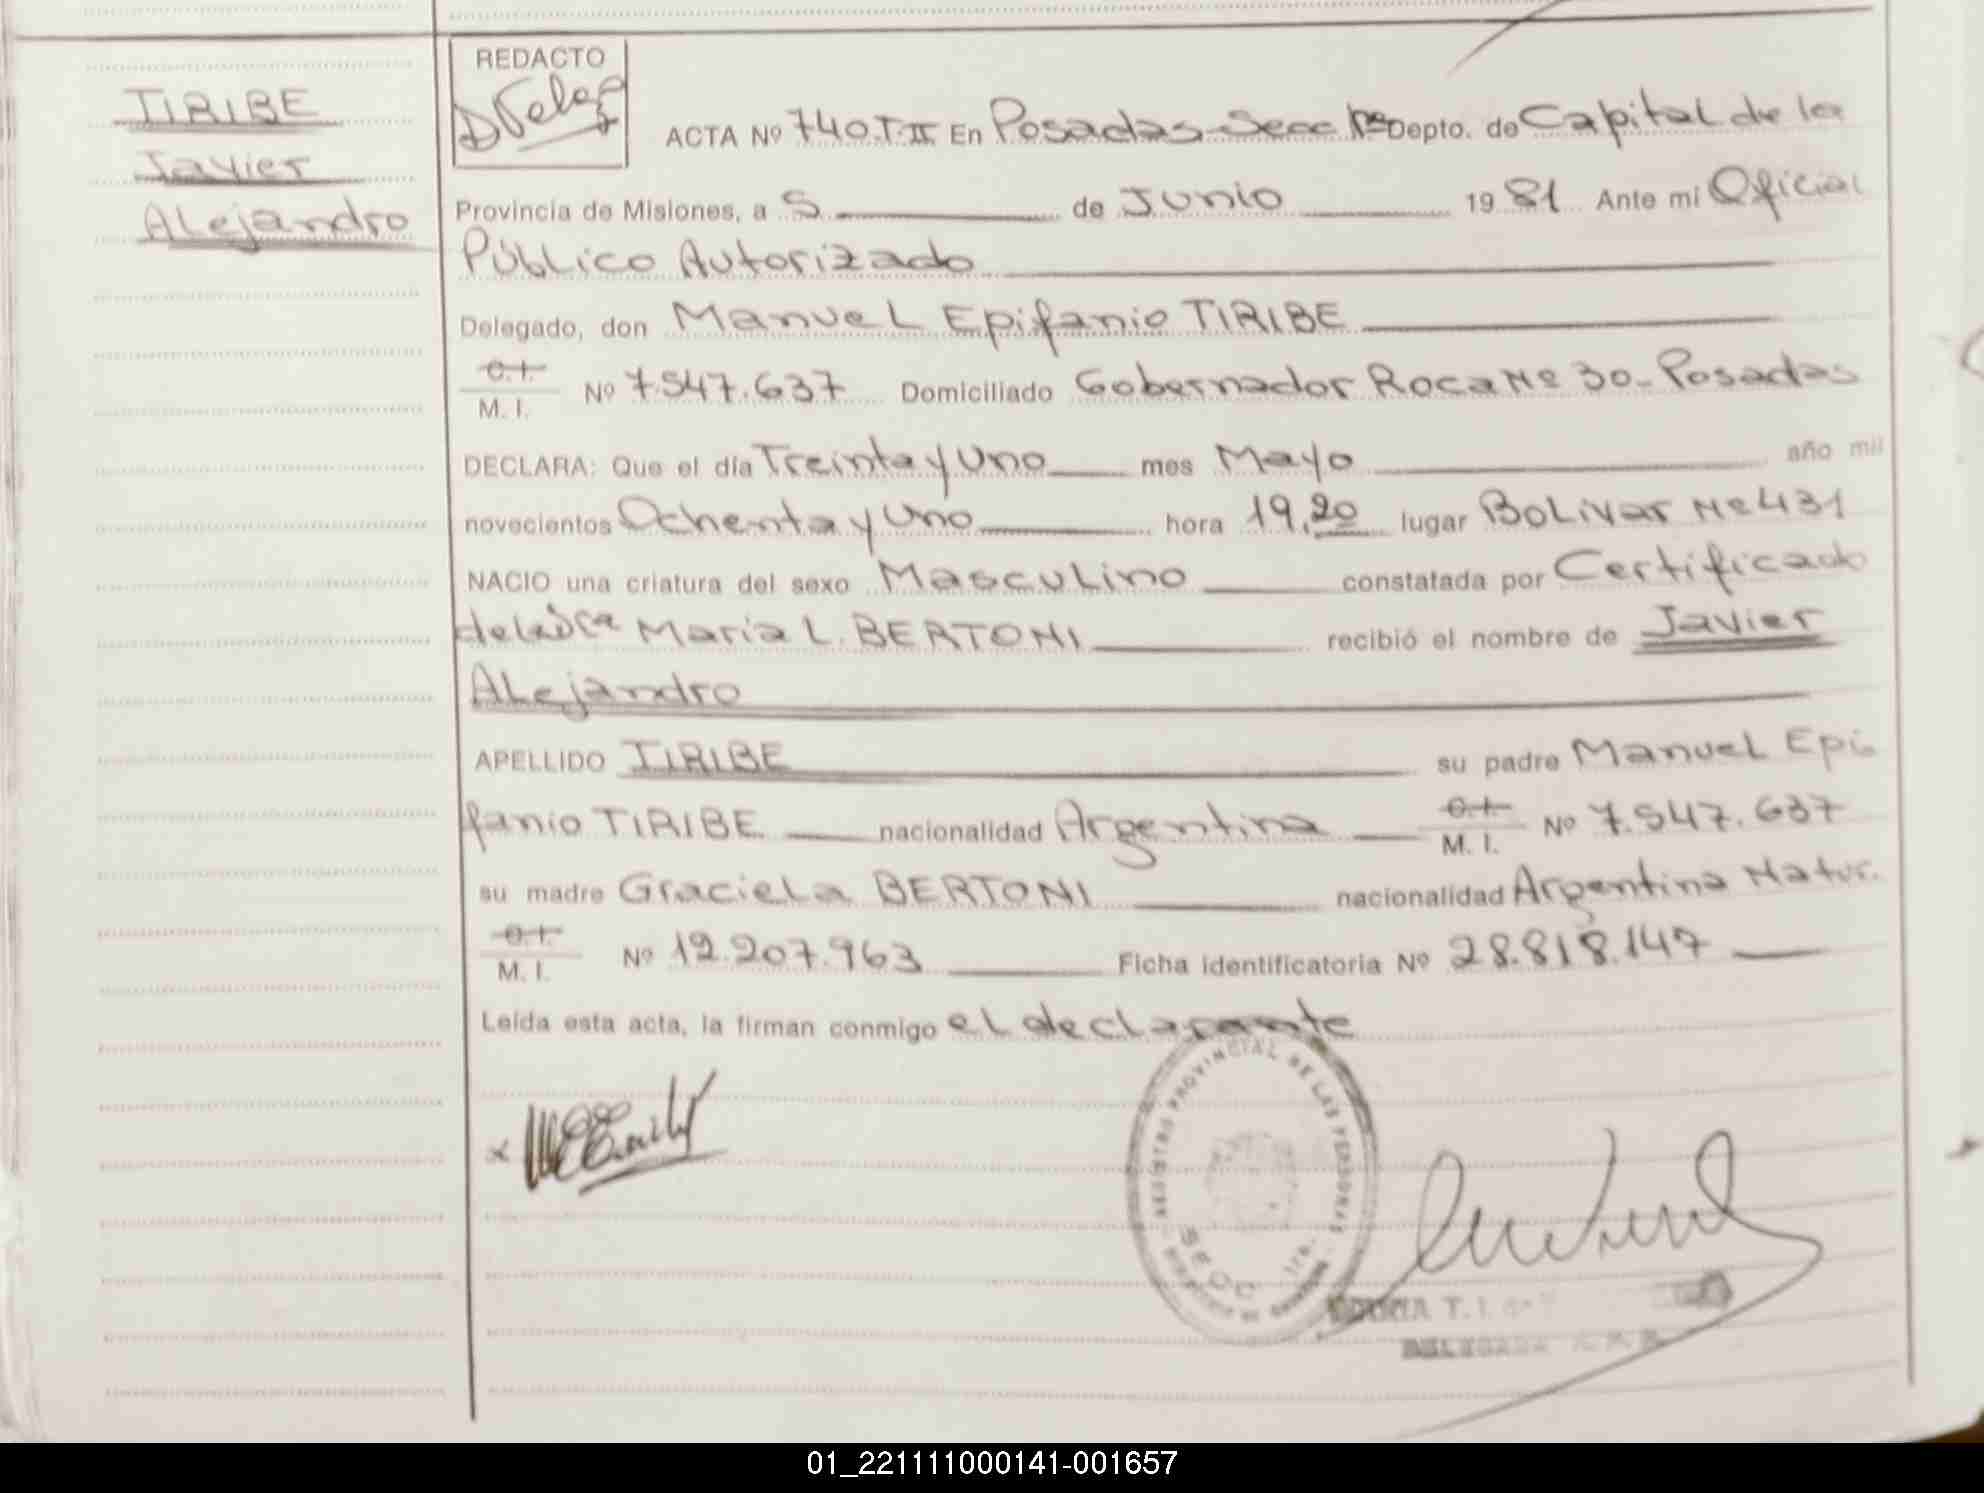 TIRIBE
Javier
Alejandro
REDACTO
ACTA Nº 740.T.II En Posadas-Secc 1ra Depto. de Capital de la
Provincia de Misiones, a 5 de Junio 1981 Ante mi Oficial
Público Autorizado
Delegado, don Manuel Epifanio TIRIBE
C.I.
M. I. Nº 7.547.637 Domiciliado Gobernador Roca Nº 30_ Posadas
DECLARA: Que el día Treinta y Uno mes Mayo año mil
novecientos Ochenta y Uno hora 19,20 lugar Bolivar Nº 431
NACIO una criatura del sexo Masculino constatada por Certificado
de la Dra Maria L. BERTONI recibió el nombre de Javier
Alejandro
APELLIDO TIRIBE su padre Manuel Epi
fanio TIRIBE nacionalidad Argentina C.I. M. I. Nº 7.547.637
su madre Graciela BERTONI nacionalidad Argentina Natur.
C.I.
M. I. Nº 12.207.963 Ficha identificatoria Nº 28.818.147
Leída esta acta, la firman conmigo el declarante
REGISTRO PROVINCIAL DE LAS PERSONAS
SECC. 1ra.
DELEGADA
01_221111000141-001657